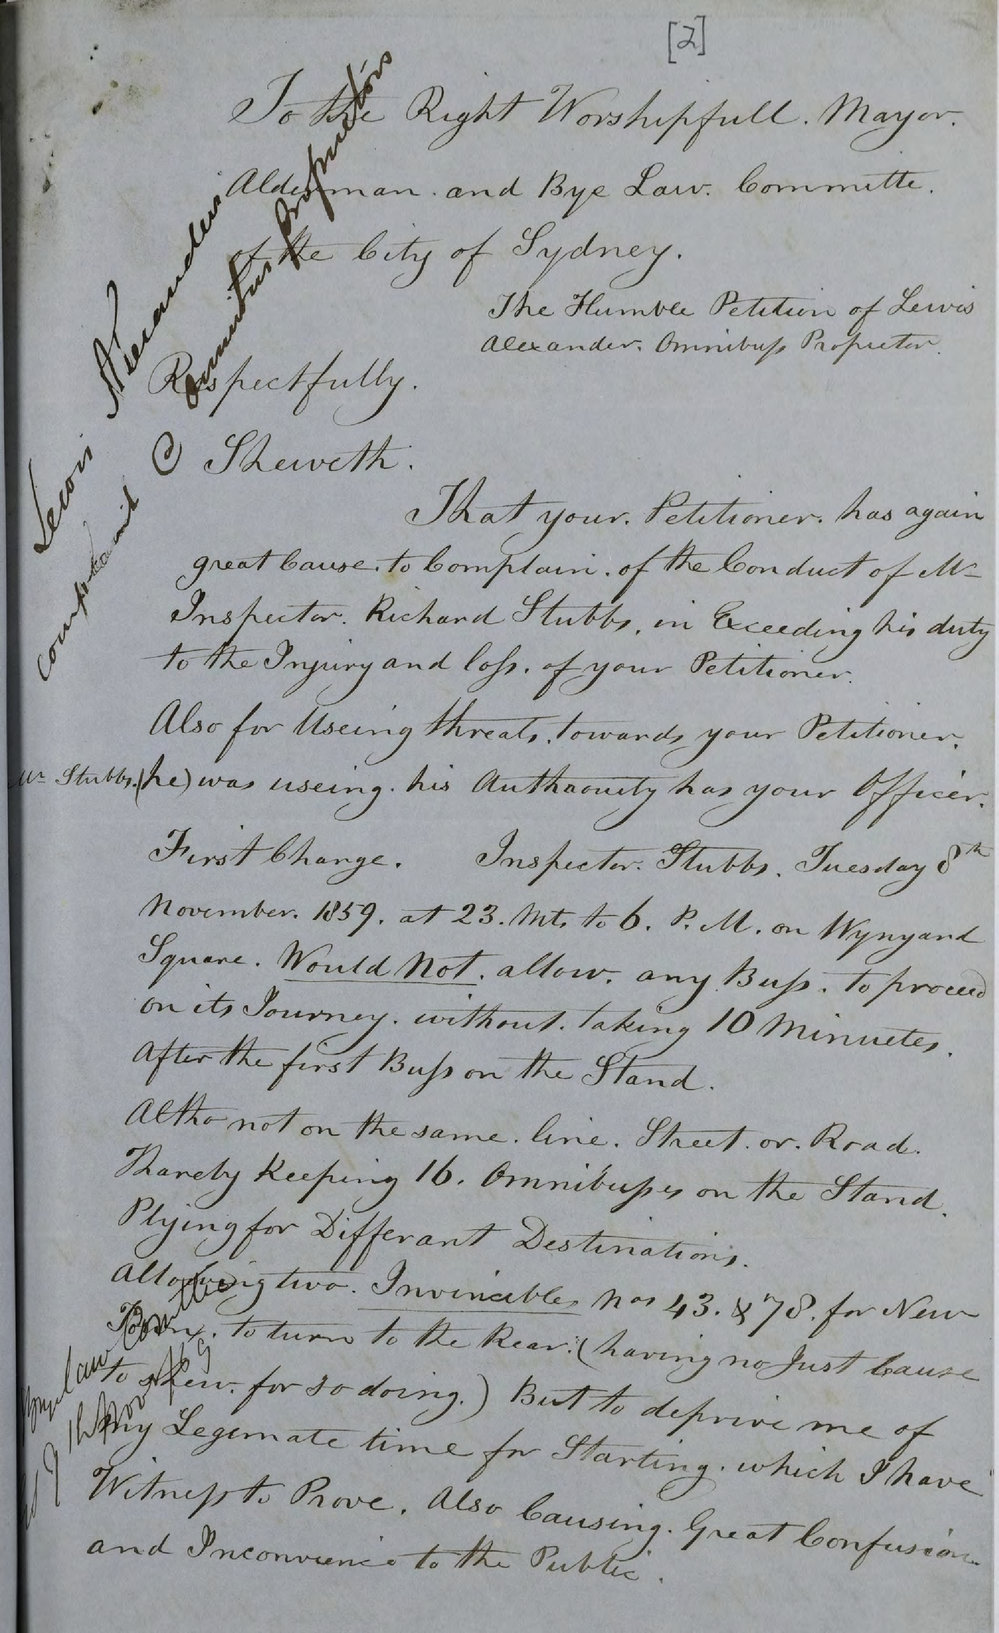 [2]
To the Right Worshipfull. Mayor.
Alderman. and Bye Law. Committe.
of the City of Sydney.
The Humble Petition of Lewis
Alexander. Omnibuss Proprietor.
Respectfully.
Sheweth.
That your. Petitioner. has again
great Cause. to Complain. of the Conduct of Mr
Inspector. Richard Stubbs, in Exceeding his duty
to the Injury and loss. of your Petitioner.
Also for Useing threats. towards your Petitioner.
Mr Stubbs. (he) was useing. his Authaouity has your Officer.
First Charge. Inspector. Stubbs. Tuesday 8th
November. 1859. at 23. Mts to 6. P.M. on Wynyard
Square. Would Not. allow. any Buss. to proceed
on its Journey. without. taking 10 Minuetes.
After the first Buss on the Stand.
Altho not on the same. line. Street. or. Road.
Thareby Keeping 16. Omnibusses on the Stand.
Plying for Differant Destinations.
Allowing two. Invincibles Nos 43. & 78. for New
Town. to turn to the Rear. (having no Just Cause
to shew. for so doing.) But to deprive me of
my Legemate time for Starting. which I have
Witness to Prove. Also Causing. Great Confusion
and Inconvience to the Public.
Lewis Alexander
Complaint Omnibus Proprietors
Byelaw Comttee